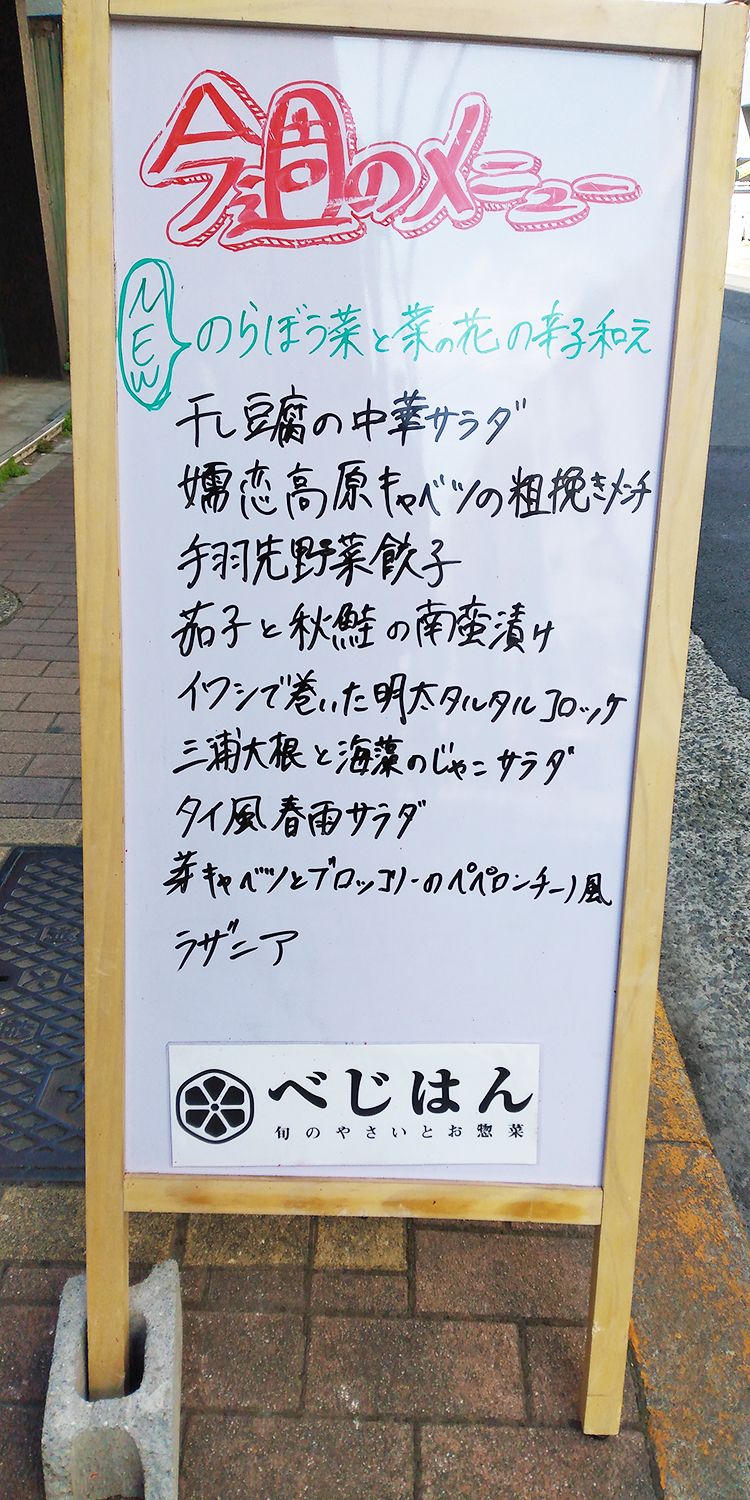 今週のメニュー
NEW のらぼう菜と菜の花の辛子和え
干し豆腐の中華サラダ
嬬恋高原キャベツの粗挽きメンチ
手羽先野菜餃子
茄子と秋鮭の南蛮漬け
イワシで巻いた明太タルタルコロッケ
三浦大根と海藻のじゃこサラダ
タイ風春雨サラダ
芽キャベツとブロッコリーのペペロンチーノ風
ラザニア
べじはん
旬のやさいとお惣菜